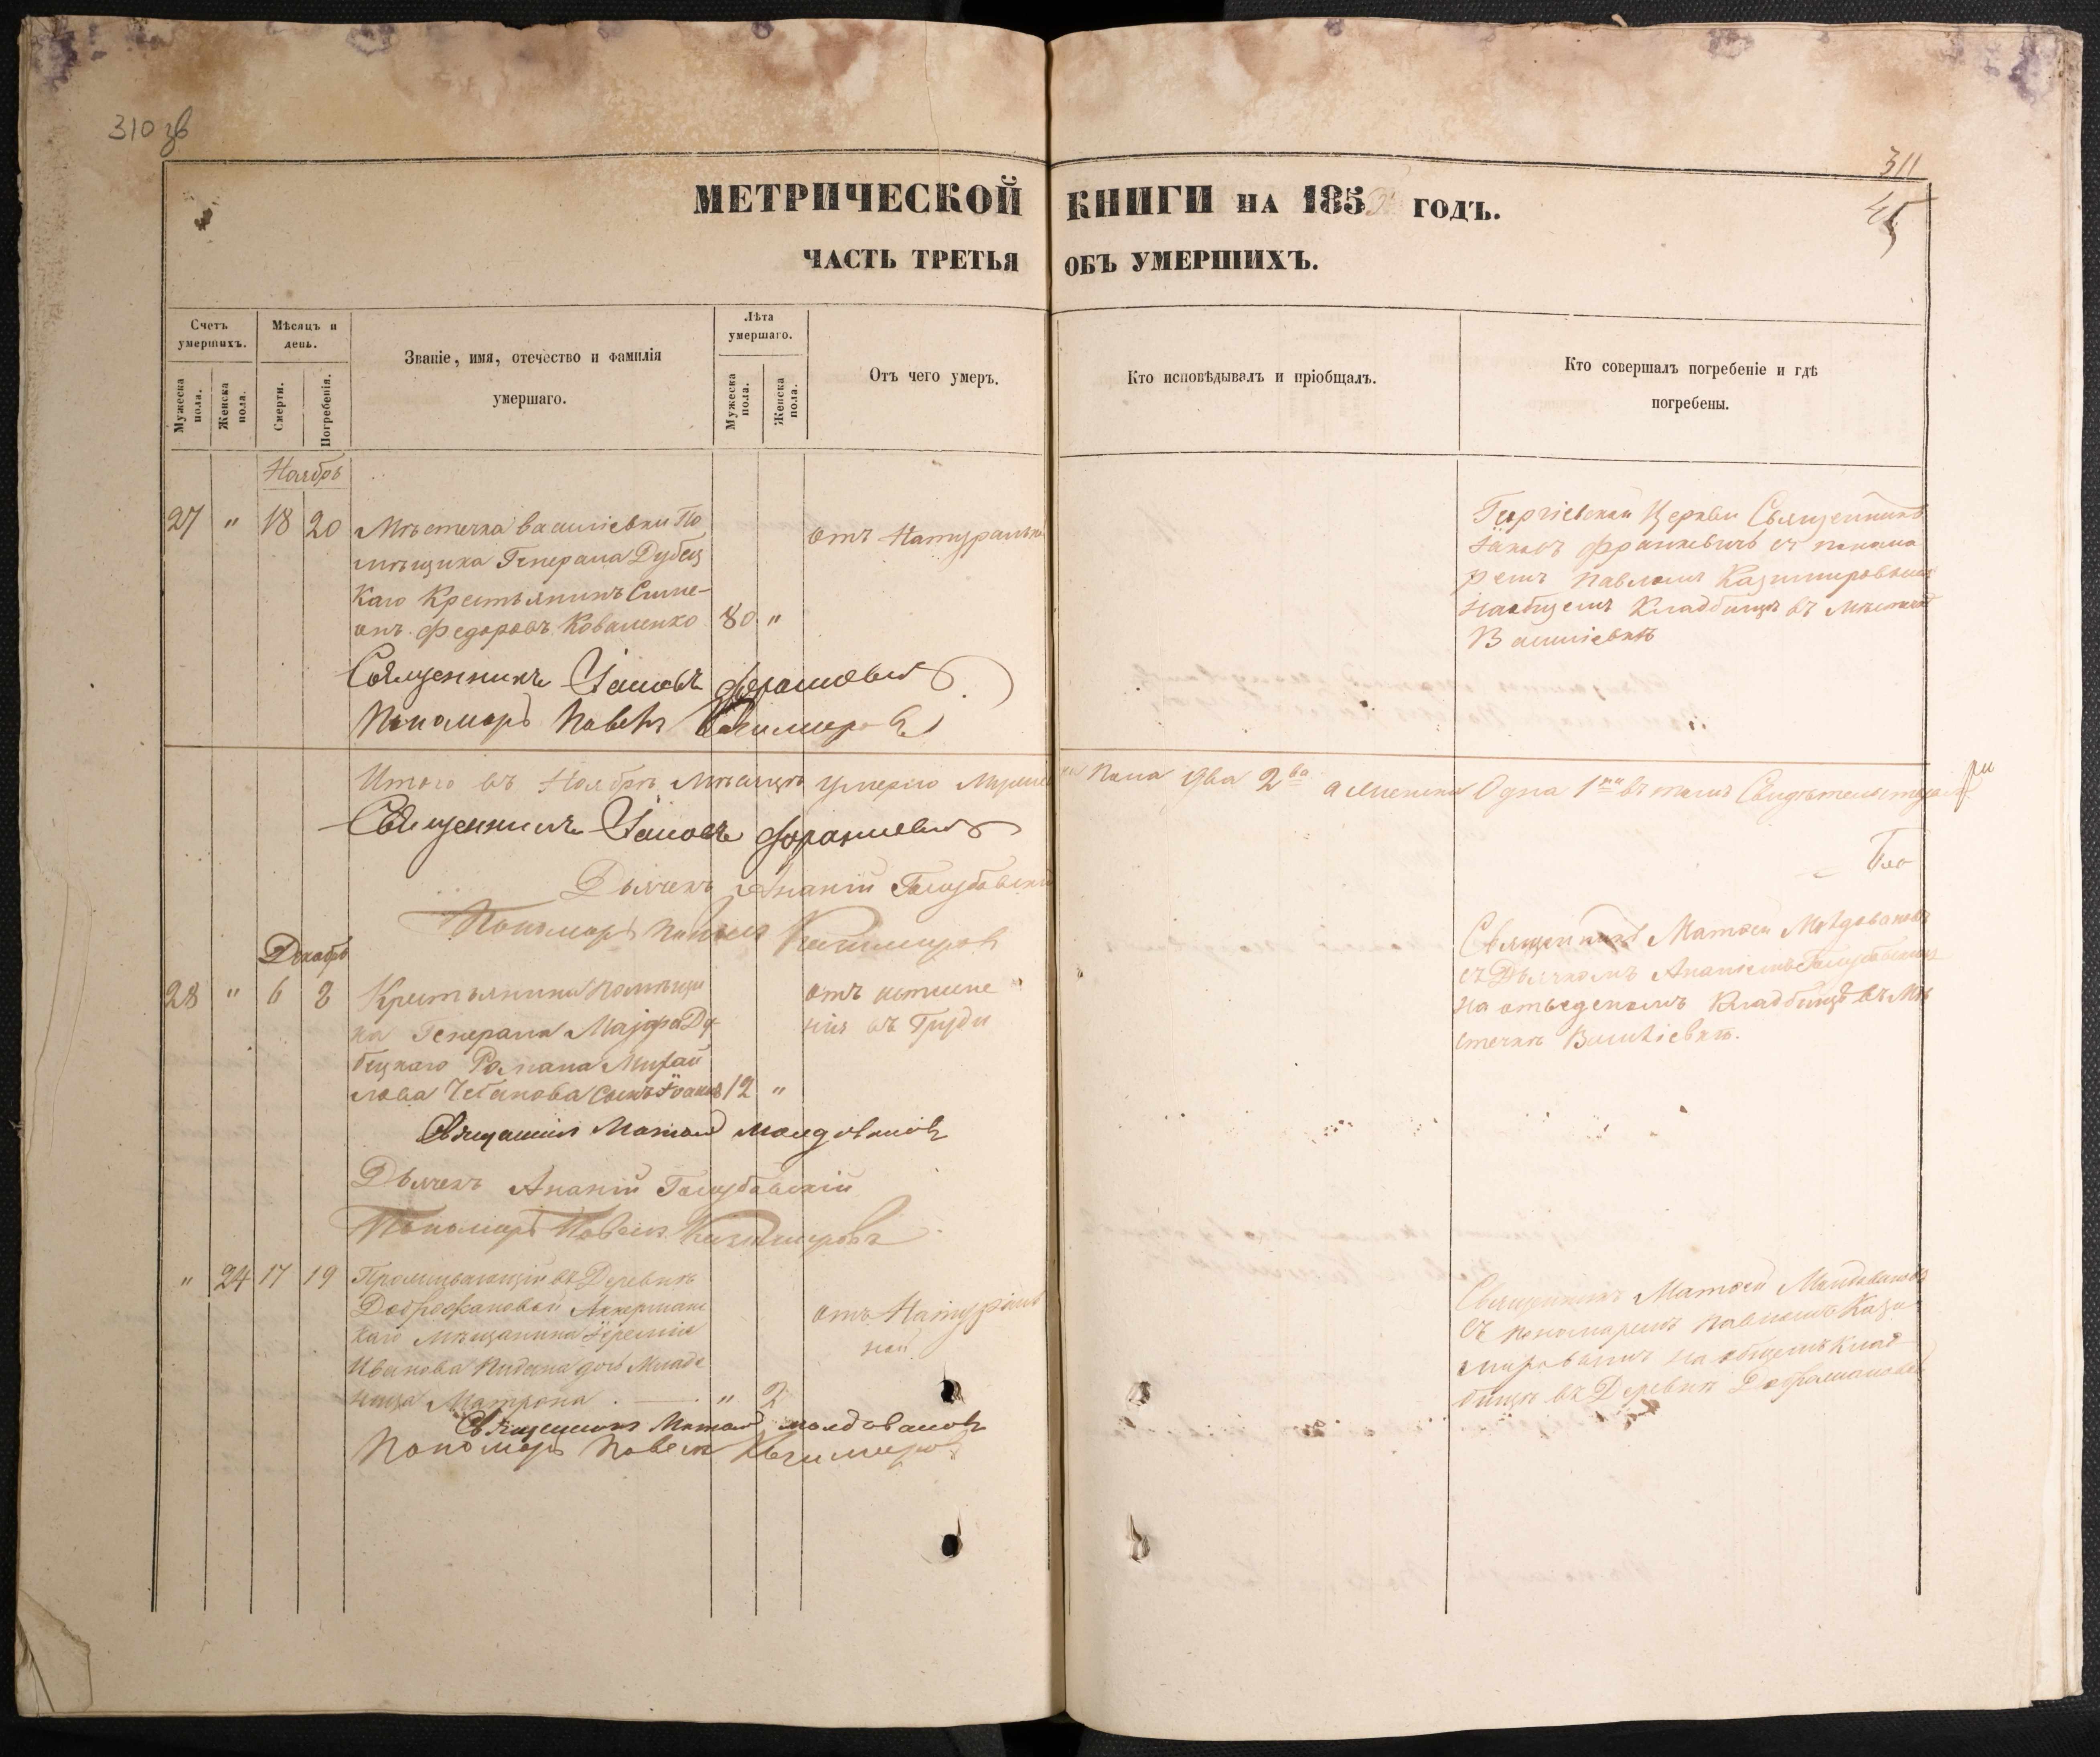 310 зв
311
45
МЕТРИЧЕСКОЙ КНИГИ НА 185 ГОДЪ.
ЧАСТЬ ТРЕТЬЯ ОБЪ УМЕРШИХЪ.
Счетъ умершихъ.
Мужеска пола.
Женска пола.
Мѣсяцъ и день.
Смерти.
Погребенія.
Званіе, имя, отечество и фамилія
умершаго.
Лѣта умершаго.
Мужеска пола.
Женска пола.
Отъ чего умеръ.
Кто исповѣдывалъ и пріобщалъ.
Кто совершалъ погребеніе и гдѣ
погребены.
Ноябрь
27 " 18 20
Мѣстечка Василіевки По
мѣщика Генерала Дубец
каго Крестьянинъ Симе-
онъ Федоровъ Коваленко 80 "
отъ Натуральн
Церкви Священникъ
Іаковъ Франкевичъ съ понома
ремъ Павломъ Казимировымъ
на общемъ Кладбищѣ въ Мѣстечкѣ
Василіевкѣ
Священникъ Іаковъ Франкевичъ
Пономарь Павелъ Казимировъ
Итого въ Ноябрѣ Мѣсяцѣ умерло Мужеска пола два 2ва а женска Одна 1на въ томъ Свидѣтельствуемъ
Священникъ Іаковъ Франкевичъ
Дьячекъ Ананій Голубовскій
Пономарь Павелъ Казимировъ
Декабрь
28 " 6 8
Крестьянина помѣщи
ка Генерала Маіора Ду
бецкаго Романа Михай
лова Чебанова сынъ 12 "
отъ
нія въ Груди
Священникъ Матѳей Молдовановъ
съ Дьячкомъ Ананіемъ Голубовскимъ
на отведеномъ Кладбищѣ въ Мѣ
стечкѣ Василіевкѣ.
Священникъ Матѳей Молдовановъ
Дьячекъ Ананій Голубовскій
Пономарь Павелъ Казимировъ
" 24 17 19
Проживающій въ Деревнѣ
Аккерман
каго Мѣщанина Іереміи
Иванова дочь Младе
ница Матрона " 2
отъ Натураль
ной
Священникъ Матѳей Молдовановъ
съ пономаремъ Павломъ Кази
мировымъ на общемъ Клад
бищѣ въ Деревнѣ
Священникъ Матѳей Молдовановъ
Пономарь Павелъ Казимировъ